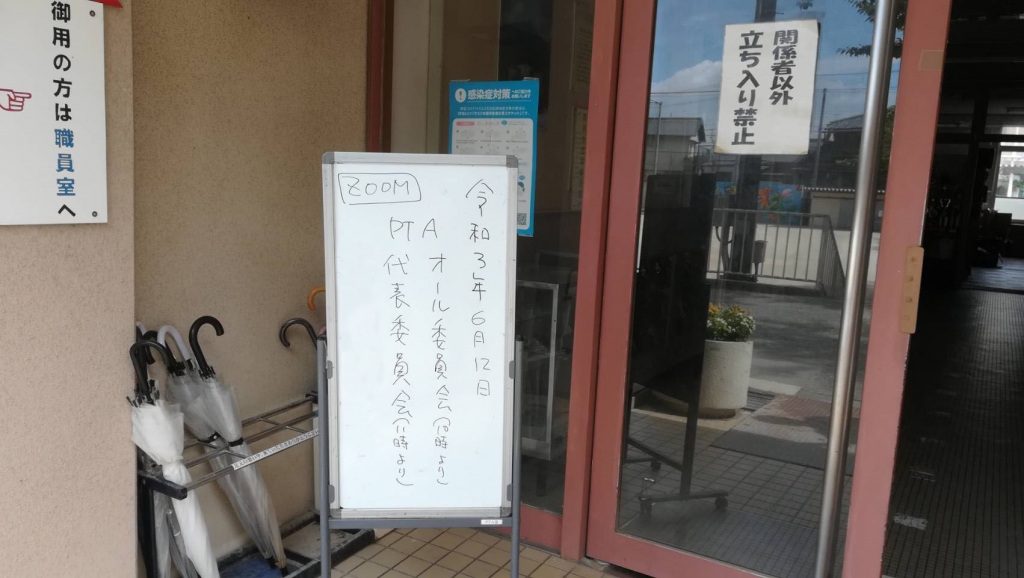 御用の方は職員室へ
感染症対策
関係者以外
立ち入り禁止
ZOOM
令和3年6月12日
PTA オール委員会(10時より)
代表委員会(11時より)